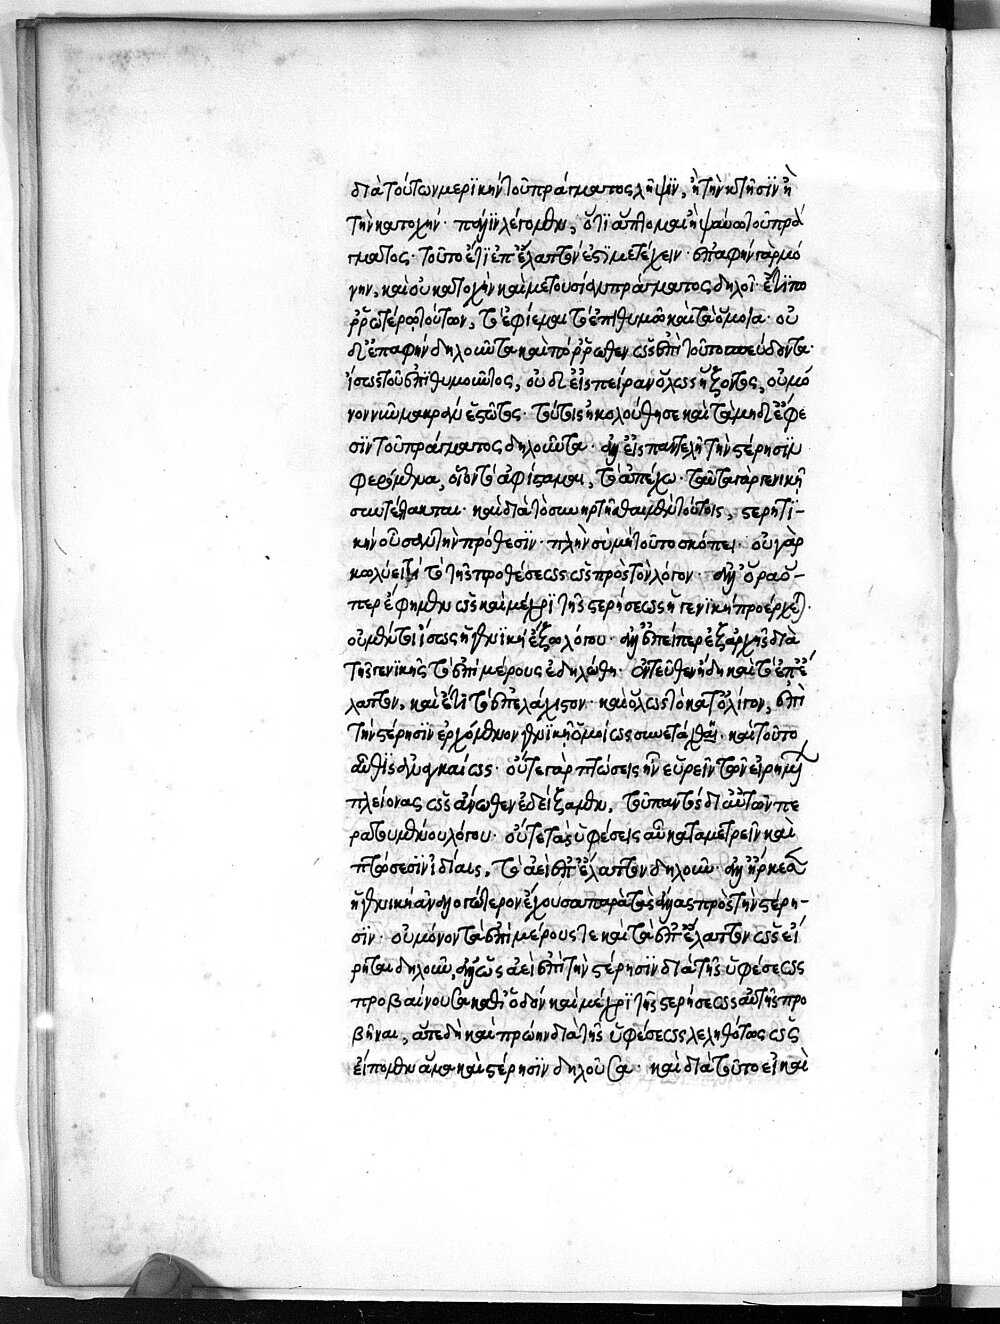 διὰ τούτων μερϊκὴν τοῦ πράγματος λῆψϊν, ἢ τὴν κτῆσϊν ἢ
τὴν κατοχήν· πάλϊν λέγομεν, ὅτϊ ἅπτομαι ἢ ψαύω τοῦ πρά
γματος· τοῦτο ἔτϊ ἐπ' ἔλαττόν ἐστϊ μετέχειν· ἐπαφὴν γὰρ μό
νην, καὶ οὐ κατοχὴν καὶ μετουσίαν πράγματος δηλοῖ· ἔτϊ πο
ρρωτέρω τούτων, τὸ ἐφίεμαι τὸ ἐπιθυμῶ καὶ τὰ ὅμοια· οὐ
δ' ἐπαφὴν δηλοῦντα καὶ πόρρωθεν ὡς ἐπὶ τοῦτο σπεύδοντα·
ἴσως τοῦ ἐπϊθυμοῦντος, οὐδ' εἰς πεῖραν ὅλως ἥξοντος, οὐ μό
νον νῦν μακρὰν ἑστῶτος· τούτοις ἠκολούθησε καὶ τὰ μηδ' ἔφε
σϊν τοῦ πράγματος δηλοῦντα· ἀλλ' εἰς παντελῆ τὴν στέρησϊν
φερόμενα, οἷον τὸ ἀφίσταμαι, τὸ ἀπέχω· ταῦτα γὰρ γενικῇ
συντέτακται· καὶ διὰ τὸ συνηρτῆσθαι μὲν τούτοις, στερητϊ-
κὴν οὖσαν τὴν πρόθεσϊν· πλὴν σὺ μὴ τοῦτο σκόπει· οὐ γὰρ
κωλύει τὸ τῆς προθέσεως ὡς πρὸς τὸν λόγον· ἀλλ' ὅρα ὅ-
περ ἔφημεν ὡς καὶ μέχρϊ τῆς στερήσεως ἡ γενϊκὴ προέρχεται·
οὐ μέντοι ἴσως ἡ γενϊκὴ ἔξω λόγου· ἀλλ' ἐπείπερ ἐξ ἀρχῆς διὰ
τῆς γενϊκῆς τὸ ἐπὶ μέρους ἐδηλώθη· ἐντεῦθεν ἤδη καὶ τὸ ἐπ' ἔ
λαττον, καὶ ἔτϊ τὸ ἐπ' ἐλάχιστον· καὶ ὅλως τὸ κατ' ὀλίγον, ἐπὶ
τὴν στέρησϊν ἐρχόμενον γενϊκῇ ὁμοίως συνετάχθη· καὶ τοῦτο
αὖθϊς ἀναγκαίως· οὔτε γὰρ πτώσεις ἦν εὑρεῖν τῶν εἰρημένων
πλείονας ὡς ἄνωθεν ἐδείξαμεν, τοῦ παντὸς δι' αὐτῶν πε
ρατουμένου λόγου· οὔτε τὰς ὑφέσεις αὖ καταμετρεῖν καὶ
πτώσεσϊν ἰδίαις, τὸ ἀεὶ ἐπ' ἔλαττον δηλοῦν· ἀλλ' ἤρκεσεν
ἡ γενικὴ ἀναλογώτερον ἔχουσα παρὰ τὰς ἄλλας πρὸς τὴν στέρη-
σϊν· οὐ μόνον τὰ ἐπὶ μέρους τε καὶ τὰ ἐπ' ἔλαττον ὡς εἴ
ρηται δηλοῦν, ἀλλ' ὡς ἀεὶ ἐπὶ τὴν στέρησϊν διὰ τῆς ὑφέσεως
προβαίνουσα καθ' ὁδὸν καὶ μέχρϊ τῆς στερήσεως αὐτῆς προ
βῆναι, ἅπερ δὴ καὶ πρώην διὰ τῆς ὑφέσεως λεληθότως ὡς
εἴπομεν ἅμα καὶ στέρησϊν δηλοῦσα· καὶ διὰ τοῦτο εἰ καὶ